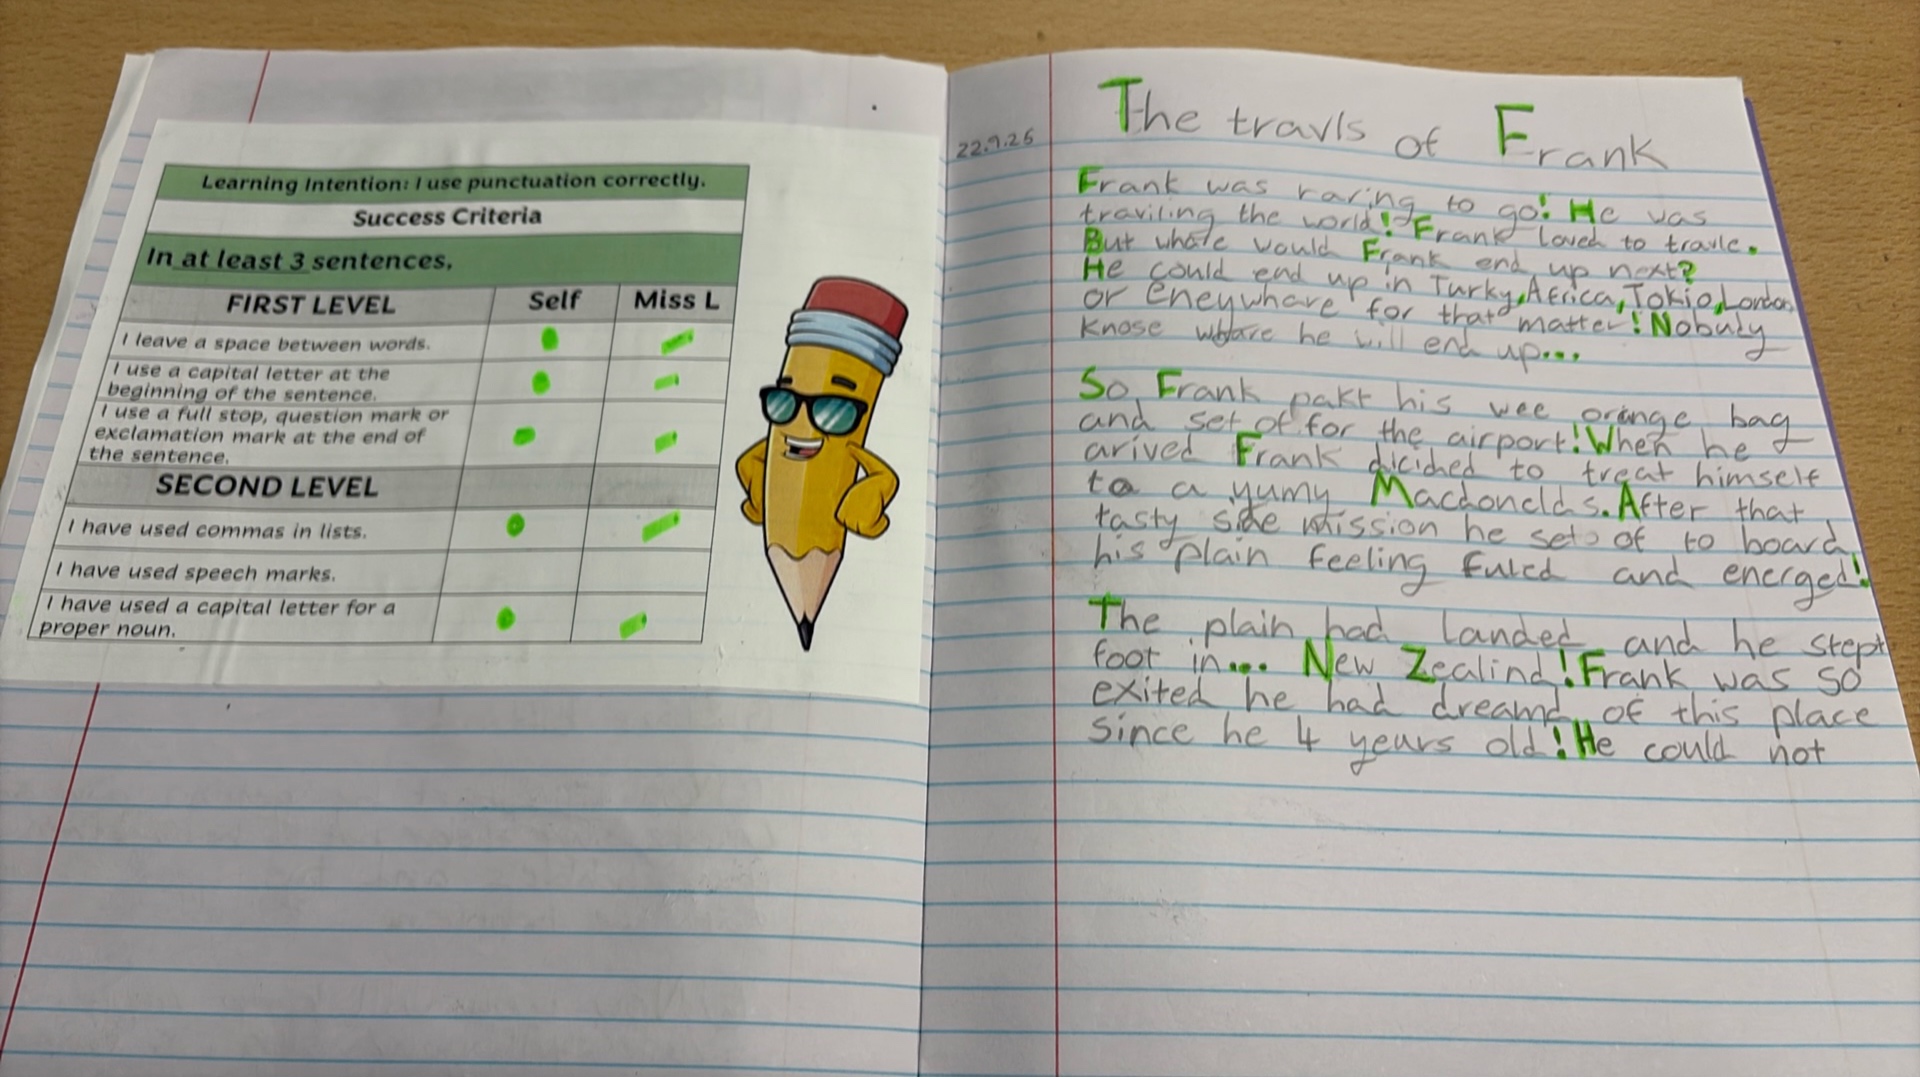 Learning Intention: I use punctuation correctly.
Success Criteria
In at least 3 sentences,
FIRST LEVEL Self Miss L
I leave a space between words.
I use a capital letter at the
beginning of the sentence.
I use a full stop, question mark or
exclamation mark at the end of
the sentence.
SECOND LEVEL
I have used commas in lists.
I have used speech marks.
I have used a capital letter for a
proper noun.
22.9.25
The travls of Frank
Frank was raring to go! He was
traviling the world! Frank loved to travle.
But whare would Frank end up next?
He could end up in Turky, Africa, Tokio, London,
or eneywhare for that matter! Nobudy
knose whare he will end up...
So Frank pakt his wee orange bag
and set of for the airport! When he
arived Frank dicided to treat himself
to a yumy Macdonelds. After that
tasty side mission he set of to board
his plain feeling fuled and energed!
The plain had landed and he stept
foot in... New Zealind! Frank was so
exited he had dreamd of this place
since he 4 years old! He could not